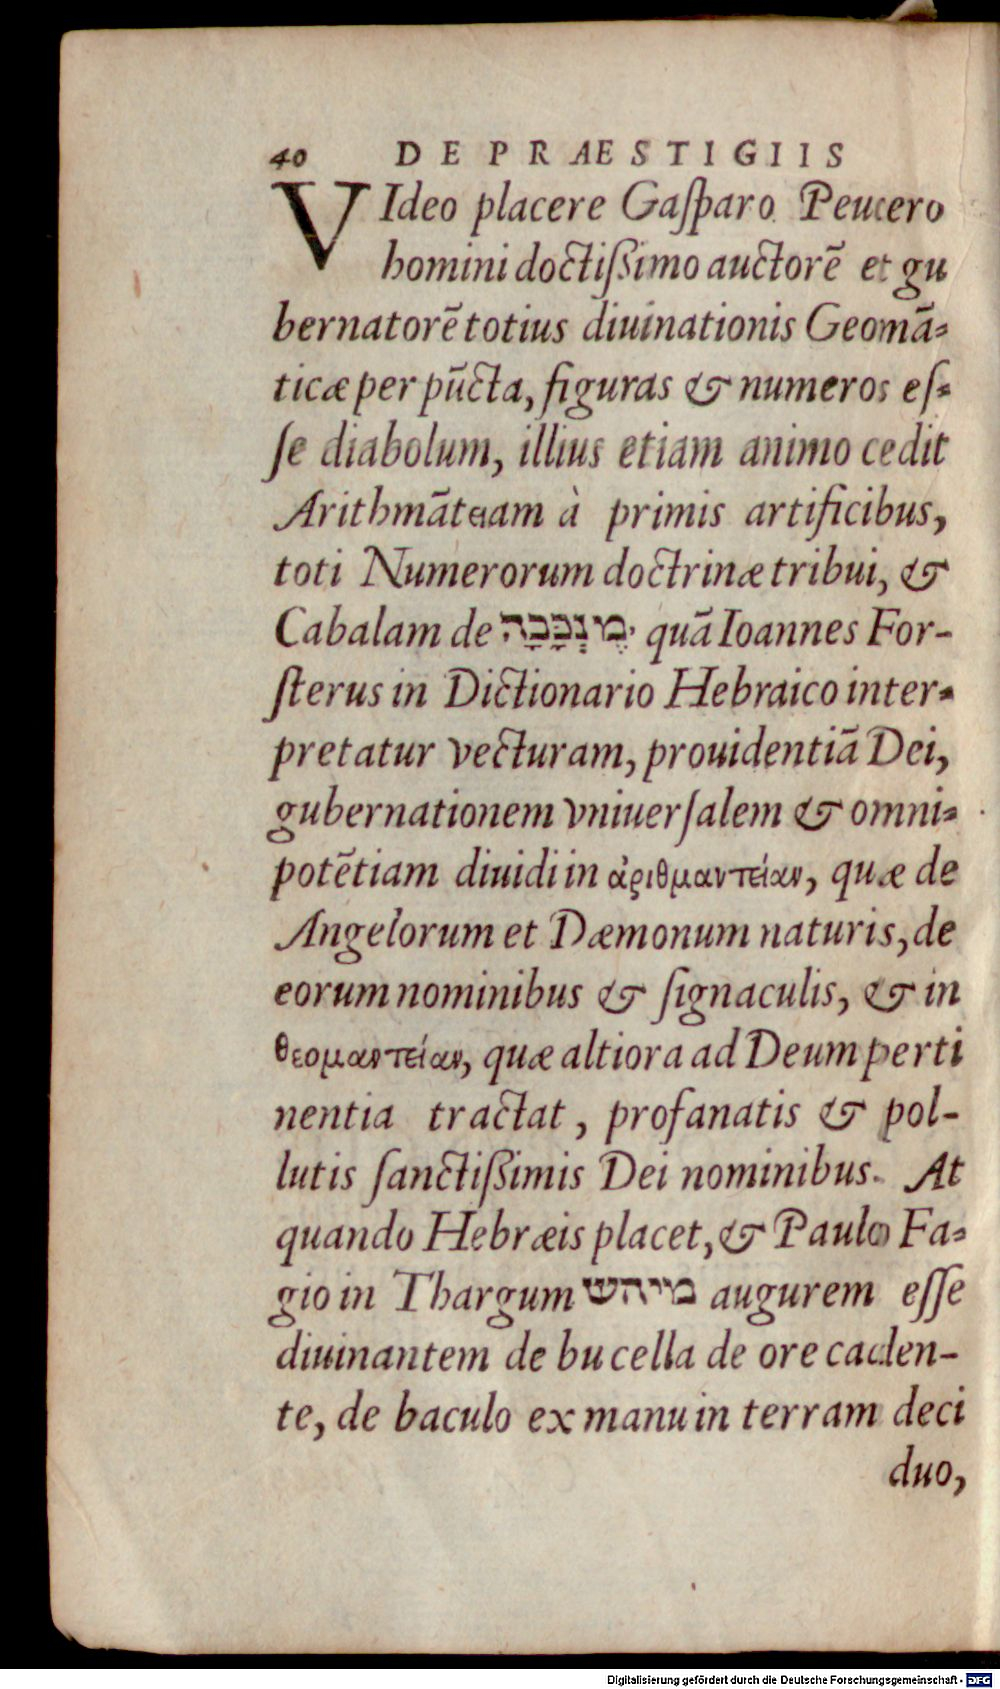 40 DE PRÆSTIGIIS
VIdeo placere Gaſparo Peucero
homini doctiſsimo auctorē et gu
bernatorē totius diuinationis Geomā-
ticæ per pūcta, figuras & numeros eſ-
ſe diabolum, illius etiam animo cedit
Arithmāteiam à primis artificibus,
toti Numerorum doctrinæ tribui, &
Cabalam de quā Ioannes For-
ſterus in Dictionario Hebraico inter-
pretatur vecturam, prouidentiā Dei,
gubernationem vniuerſalem & omni-
potētiam diuidi in ἀριθμαντείαν, quæ de
Angelorum et Dæmonum naturis, de
eorum nominibus & ſignaculis, & in
θεομαντείαν, quæ altiora ad Deum perti
nentia tractat, profanatis & pol-
lutis ſanctiſsimis Dei nominibus. At
quando Hebræis placet, & Paulo Fa-
gio in Thargum augurem eſſe
diuinantem de bucella de ore caden-
te, de baculo ex manu in terram deci
duo,
Digitalisierung gefördert durch die Deutsche Forschungsgemeinschaft - DFG